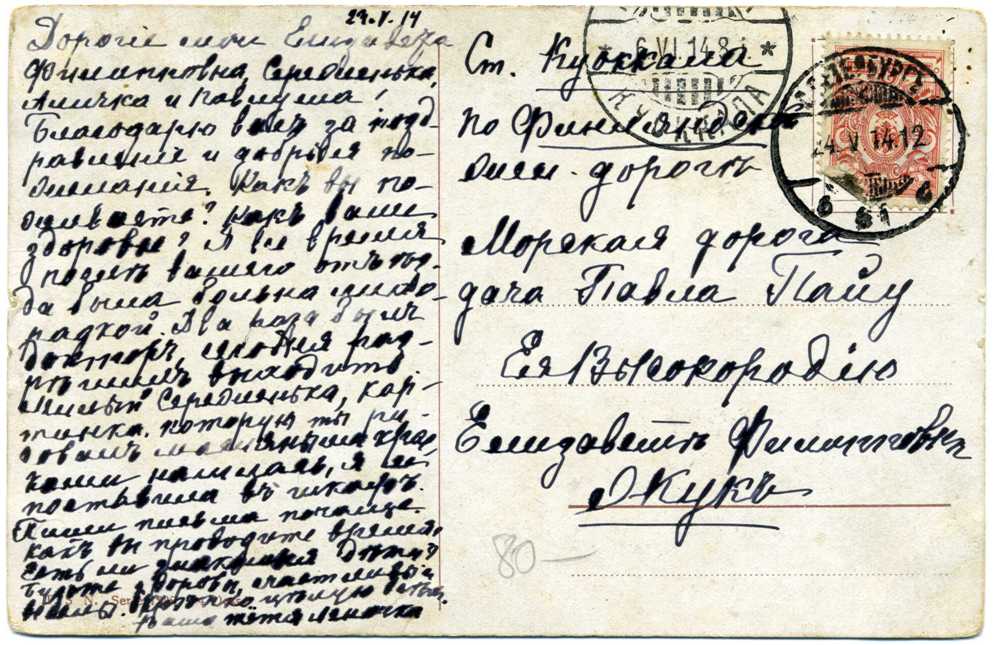 23.V.14
Дорогіе мои Елизавета
Филипповна, Сереженька,
Аличка и Павлуша!
Благодарю васъ за позд-
равленіе и добрыя по-
желанія. Какъ вы по-
живаете? Какъ ваше
здоровье? Я все время
послѣ вашего отъѣз-
да была больна лихо-
радкой. Два раза былъ
докторъ, сегодня раз-
рѣшилъ выходить.
Милый Сереженька, кар-
тинка которую ты ри-
совалъ масляными крас-
ками нашлась, я ее
поставила въ шкафъ.
Пиши письма почаще.
какъ вы проводите время,
есть ли знакомыя дѣти?
Будьте здоровы, счастливы и
Крѣпко цѣлую
Ваша тётя Леночка
Ст. Куоккала
по Финляндск.
жел. дорогѣ
Морская дорога
дача Павла Пайу
Ея Высокородію
Елизаветѣ Филипповнѣ
Жукъ
6.VI.14.8
KUOKKALA
С.ПЕТЕРБУРГЪ
24 V 14.12
80—